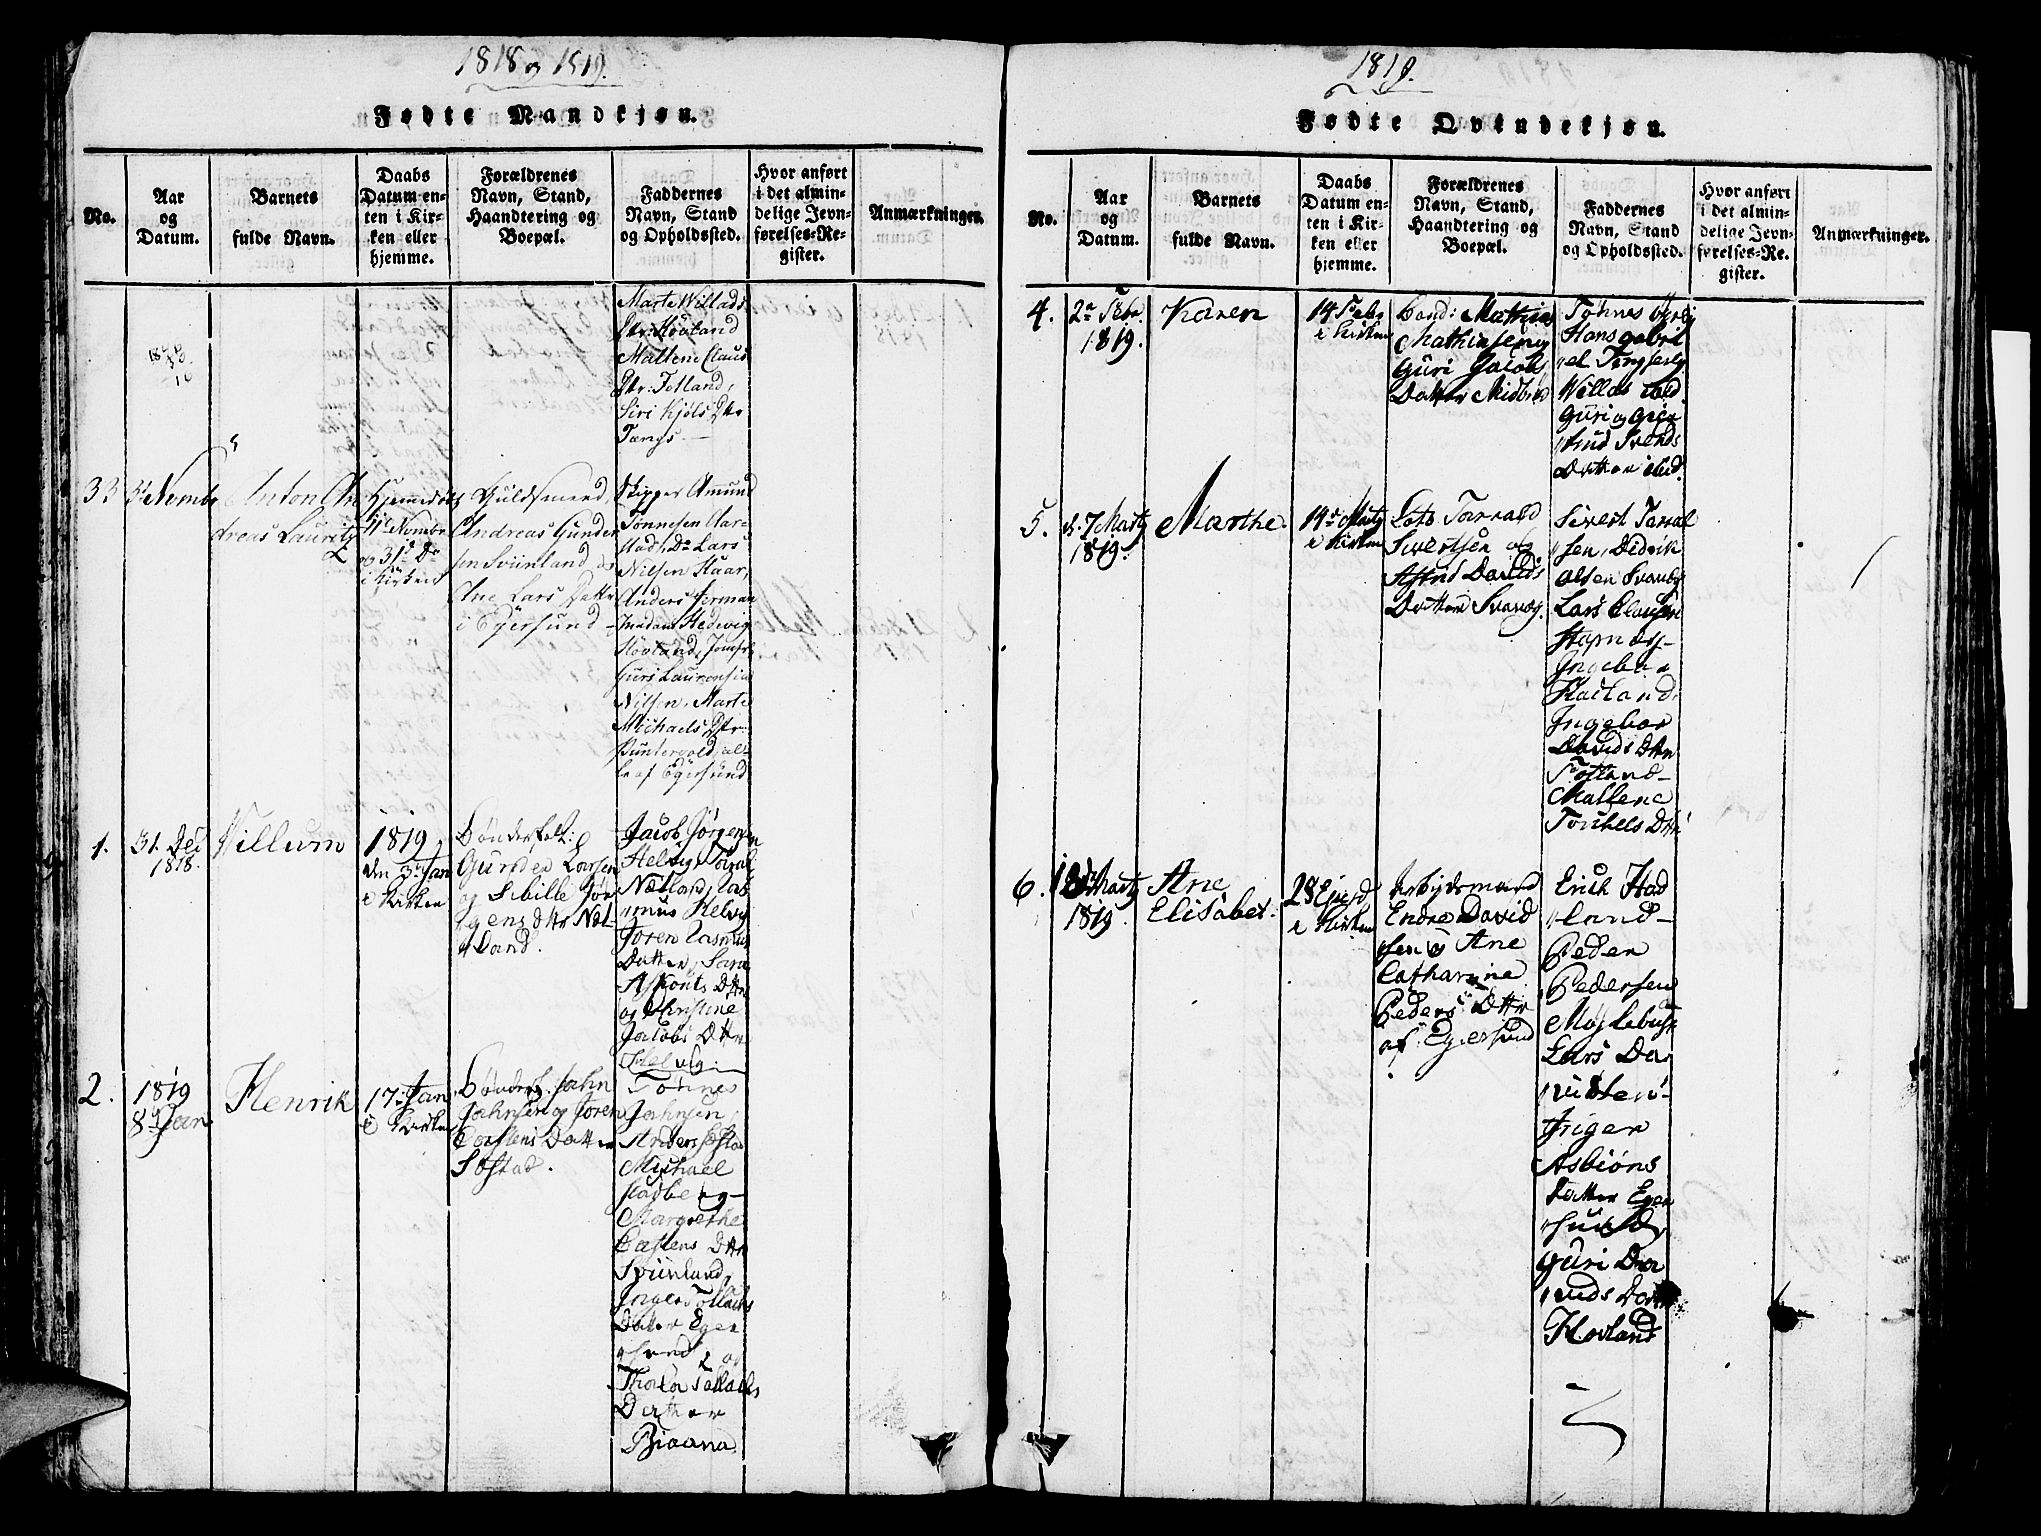 1818 og 1819.
Fødte Mandkjøn.
No.
Aar
og
Datum.
Barnets
fulde Navn.
Daabs
Datum en-
ten i Kir-
ken eller
hjemme.
Forældrenes
Navn, Stand,
Haandtering og
Boepæl.
Faddernes
Navn, Stand
og Opholdssted.
Hvor anført
i det almin-
delige Jevn-
førelses-Re-
gister.
Anmærkninger.
Marte Willads
Dtr: Hovland
Mallene Claus
Dtr: Tolland,
Siri Kjøls Dtr
Tengs
33
Novembr
Anton An
dreas Lauritz
Hjemmedøbt
Novembr
og 31te Dec
i Kirken
Guldsmed
Andreas Gunder
sen Sviinland, og
Ane Lars Dattr
i Egersund
Skipper Amund
Tønnesen Aar-
stad, Do Lars
Nilsen Haar,
Anders Ferman
Madam Hedevig
Hovland, Jomfr
Guri Laurensia
Nilsen, Marte
Michaels Dtr:
Puntervold, al-
le af Egersund
1.
31. Dec
1818.
Willum
1819
den 3: Jan
i Kirken
Bønderfolk:
Gunder Larsen
og Sibille Jør
gens Dttr Næt-
land.
Jacob Jørgensen
Helvig, Toral
Nætland, Ras
mus Helvig
Joren Rasmus
Datter, Sara
Asmonts Dttr
og Christine
Jacobs Dttr
Helvig
2.
1819
8de Jan
Henrik
17: Jan
i Kirken
Bønderf. John
Johnsen og Joren
Carstens Datter
Søstad.
Tønnes
Johnsen,
Anders Søstad
Michael
Stadberg
Margrethe
Castens Dttr
Sviinland,
Inger Tollachs
Datter Eger
sund, og
Thorbor Tollachs
Datter
Biaana
1819.
Fødte Qvindekjøn.
No.
Aar
og
Datum.
Barnets
fulde Navn.
Daabs
Datum en-
ten i Kir-
ken eller
hjemme.
Forældrenes
Navn, Stand,
Haandtering og
Boepæl.
Faddernes
Navn, Stand
og Opholdssted.
Hvor anført
i det almin-
delige Jevn-
førelses-Re-
gister.
Anmærkninger.
4.
2de Febr
1819.
Karen
14 Febr
i Kirken
Bond: Mathias
Mathiasen og
Guri Jacobs
Datter Midbrød
Tønnes
Hans Gabri
el
Willas
Guri og Gier
trud Svends
Datter ibid.
5.
d. 7 Martz
1819.
Marthe
14de Martz
i Kirken
Lots Torrald
Sivertsen og
Astrid Davids
Datter Svanes.
Sivert Torral
sen, Didrik
Olsen Svanes
Lars Clausen
Stapnæs
Ingebor
Ingebor
Davids Dttr
Tofland
Mallene
Torkels Dttr
6.
Martz
1819.
Ane
Elisabet.
28 Ejusd
i Kirken
Arbeidsmand
Endre David
sen og Ane
Catharine
Peders Dttr
af Egersund
Erich Had
land
Peder
Pedersen
Møglebust
Lars Da
vidsen
Inger
Asbiøns
Datter Eger
sund,
Guri Da
vids Dattr
Hovland